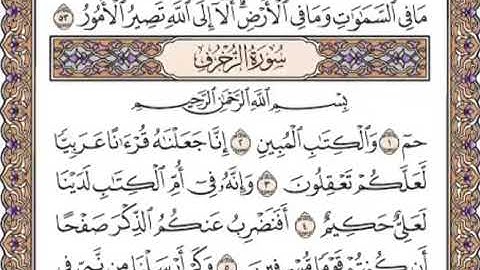 مَا فِي السَّمَٰوَٰتِ وَمَا فِي الْأَرْضِ ۗ أَلَا إِلَى اللَّهِ تَصِيرُ الْأُمُورُ ٥٣
سُورَةُ الزُّخْرُفِ
بِسْمِ اللَّهِ الرَّحْمَٰنِ الرَّحِيمِ
حمٓ ١ وَالْكِتَٰبِ الْمُبِينِ ٢ إِنَّا جَعَلْنَٰهُ قُرْءَٰنًا عَرَبِيًّا
لَّعَلَّكُمْ تَعْقِلُونَ ٣ وَإِنَّهُ فِي أُمِّ الْكِتَٰبِ لَدَيْنَا
لَعَلِيٌّ حَكِيمٌ ٤ أَفَنَضْرِبُ عَنكُمُ الذِّكْرَ صَفْحًا
أَن كُنتُمْ قَوْمًا مُّسْرِفِينَ ٥ وَكَمْ أَرْسَلْنَا مِن نَّبِيٍّ فِي